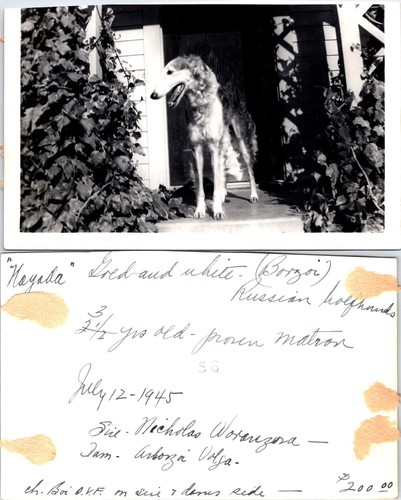 "Nayada" Gold and white - (Borzoi)
Russian Wolfhounds
3
2½ yrs old - proven matron
S6
July 12 - 1945
Sire - Nicholas Woronzova -
Dam - Arborzoi Volga -
Ch. Boi O.V.F. on sire & dams side -
$200.00